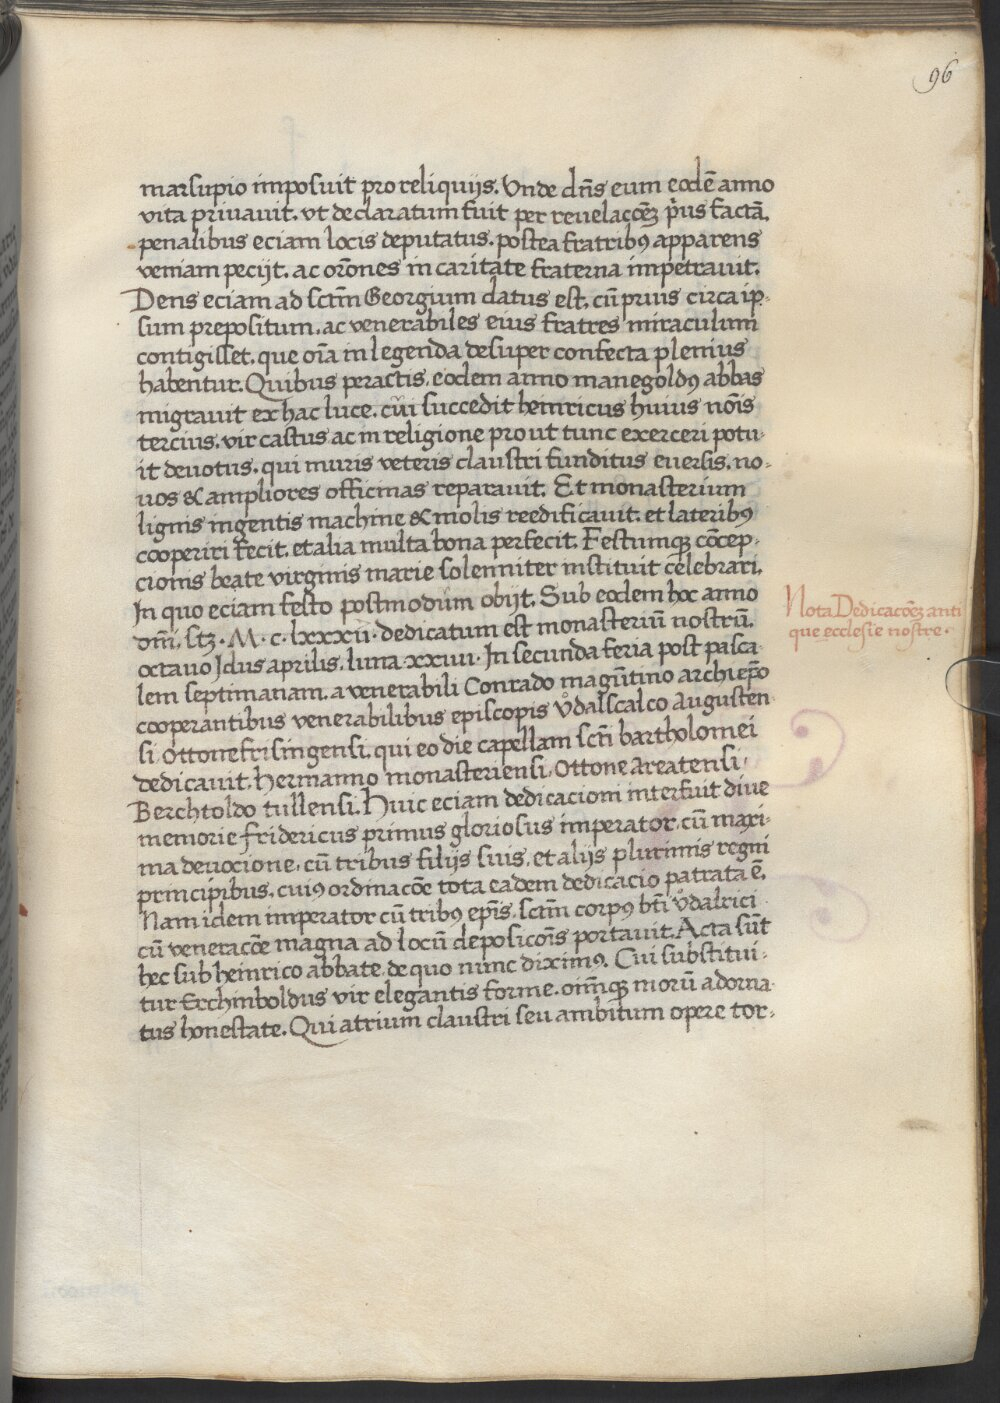 96
marsupio imposuit pro reliquijs. Vnde dn̄s eum eodē anno
vita priuauit. vt declaratum fuit per reuelaccōeꝫ pͥus factā.
penalibus eciam locis deputatus. postea fratribꝰ apparens
veniam pecijt. ac orōnes in caritate fraterna impetrauit.
Dens eciam ad sctm̄ Georgium datus est. cū prius circa ip-
sum prepositum. ac venerabiles eius fratres miraculum
contigisset. que oīa in legenda desuper confecta plenius
habentur. Quibus peractis. eodem anno manegoldꝰ abbas
migrauit ex hac luce. cui succedit heinricus huius noīs
tercius. vir castus ac in religione prout tunc exerceri potu-
it deuotus. qui muris veteris claustri funditus euersis. no-
uos & ampliores officinas reparauit. Et monasterium
lignis ingentis machine & molis reedificauit. et lateribꝰ
cooperiri fecit. et alia multa bona perfecit. Festumqꝫ cōcep-
cionis beate virginis marie solenniter instituit celebrari.
In quo eciam festo postmodum obijt. Sub eodem hoc anno
dom̄i. sꝫ. M. c. lxxxii. dedicatum est monasteriū nostrū.
octauo Idus aprilis. luna xxiiii. In secunda feria post pasca
lem septimanam. a venerabili Conrado magūtino archiep̄o
cooperantibus venerabilibus episcopis vͦdalscalco augusten
si. ottone frisingensi. qui eo die capellam sctī bartholomei
dedicauit. hermanno monasteriensi. ottone areatensi.
Berchtoldo tullensi. Huic eciam dedicacioni interfuit diue
memorie fridericus primus gloriosus imperator. cū maxi-
ma deuocione. cū tribus filijs suis. et alijs plurimis regni
principibus. cuiꝰ ordinacōe tota eadem dedicacio patrata ē.
Nam idem imperator cū tribꝰ ep̄is. sctm̄ corpꝰ bt̄i vͦdalrici
cū veneracōe magna ad locū deposicōis portauit. Acta sūt
hec sub heinrico abbate. de quo nunc diximꝰ. Cui substitui-
tur Erchinboldus vir elegantis forme. omīqꝫ morū adorna
tus honestate. Qui atrium claustri seu ambitum opere tor-
Nota Dedicacōeꝫ anti
que ecclesie nostre.